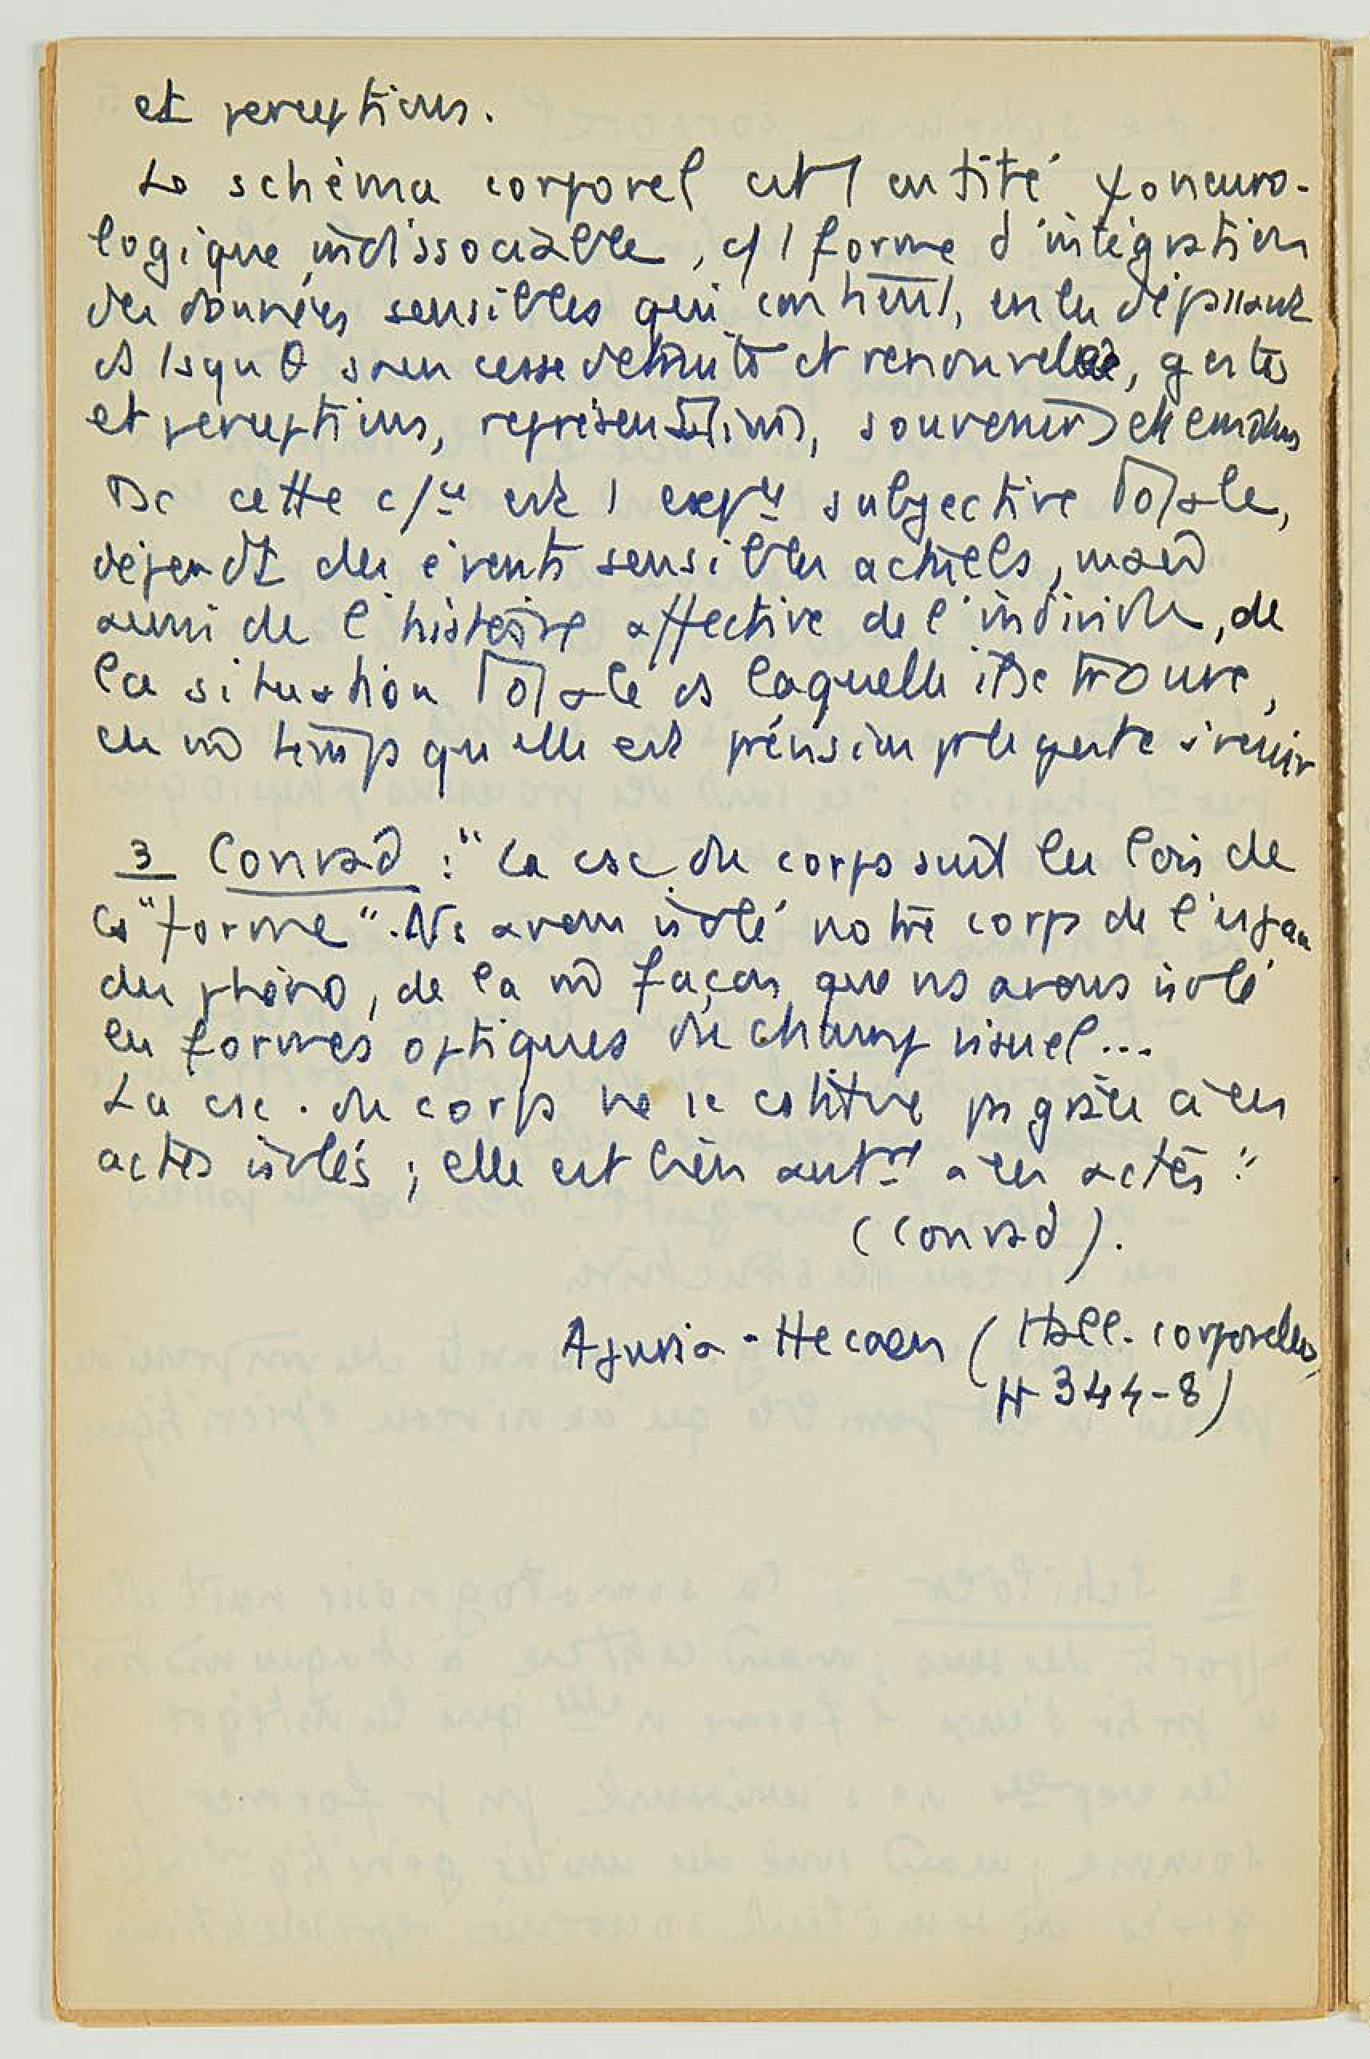 et perceptions.
Le schéma corporel est 1 entité ψoneuro-
logique indissociable, c/ 1 forme d'intégration
des données sensibles qui contient, en les dépassant
et sans cesse détruite et renouvelée, gestes
et perceptions, représentations, souvenirs et émotions
Dc cette c/ce est 1 expce subjective totale,
dépendt des évents sensibles actuels, mais
aussi de l'histoire affective de l'individu, de
la situation totale ds laquelle il se trouve,
en m temps qu'elle est prévision pr le geste à venir
3 Conrad : "La csc du corps suit les lois de
la "forme". Ns avons isolé notre corps de l'espace
des phéno, de la m façon que ns avons isolé
les formes optiques du champ visuel...
La csc. du corps ne se cstitue ps grâce à des
actes isolés ; elle est bien antre à ces actes"
(Conrad).
Ajuria-Hecaen (Hall. corporelles
H 344-8)